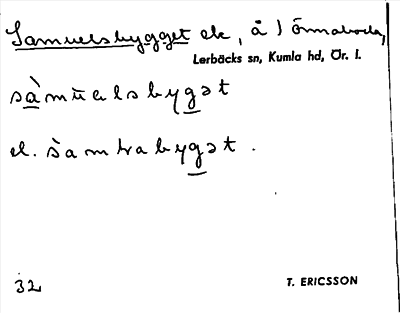 Samuelsbygget ek, å l Örmaboda,
Lerbäcks sn, Kumla hd, Ör. l.
sàmu̅elsbygət
el. samtrabygət.
32
T. ERICSSON